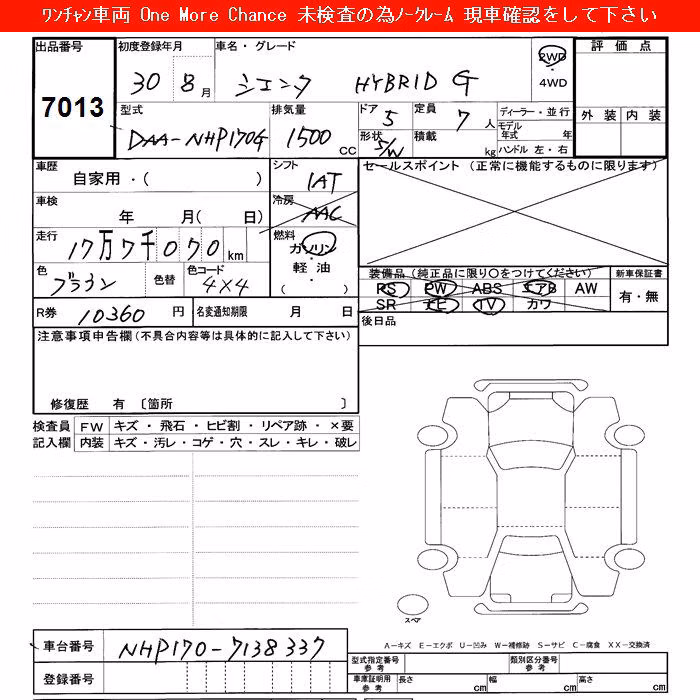 ﾜﾝﾁｬﾝ車両 One More Chance 未検査の為ﾉｰｸﾚｰﾑ 現車確認をして下さい
出品番号 初度登録年月 車名・グレード 評価点
7013 30 8月 シエンタ HYBRID G 2WD・4WD
外装 内装
型式 排気量 ドア 定員 ディーラー・並行
DAA-NHP170G 1500cc 5 7人 モデル年式 年
形状 積載 ハンドル 左・右
S/W kg
車歴 シフト セールスポイント (正常に機能するものに限ります)
自家用・( ) IAT
車検 冷房
年 月( 日) AAC
走行 燃料
17万7千070km ガソリン・軽油・( )
色 色替 色コード 装備品(純正品に限り○をつけてください) 新車保証書
ブラウン 4X4 PS PW ABS エアB AW 有・無
SR ナビ TV カワ
R券 10360円 名変通知期限 月 日 後日品
注意事項申告欄(不具合内容等は具体的に記入して下さい)
修復歴 有 〔箇所 〕
検査員 FW キズ・飛石・ヒビ割・リペア跡・×要
記入欄 内装 キズ・汚レ・コゲ・穴・スレ・キレ・破レ
スペア
A-キズ E-エクボ U-凹み W-補修跡 S-サビ C-腐食 XX-交換済
車台番号 NHP170-7138337
型式指定番号 参考 類別区分番号 参考
登録番号
車庫証明用 参考 長さ cm 幅 cm 高さ cm